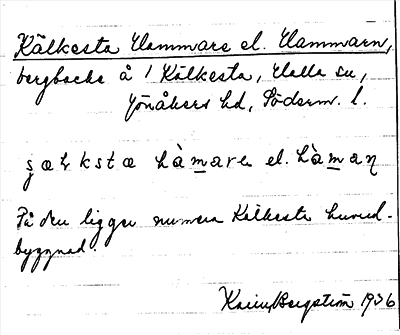 Kälkesta Hammare el. Hammarn,
bergbacke å 1 Kälkesta, Halla sn,
Jönåkers hd, Söderm. l.
hàmare el. hàman
På den ligger numera Kälkesta huvud-
byggnad.
Karin Bergström 1936